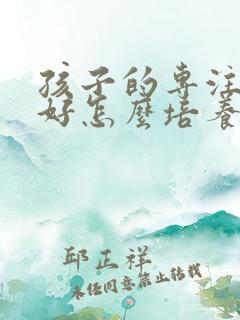 孩子的專注
好怎麼培養
邱正祥
未經同意禁止轉載